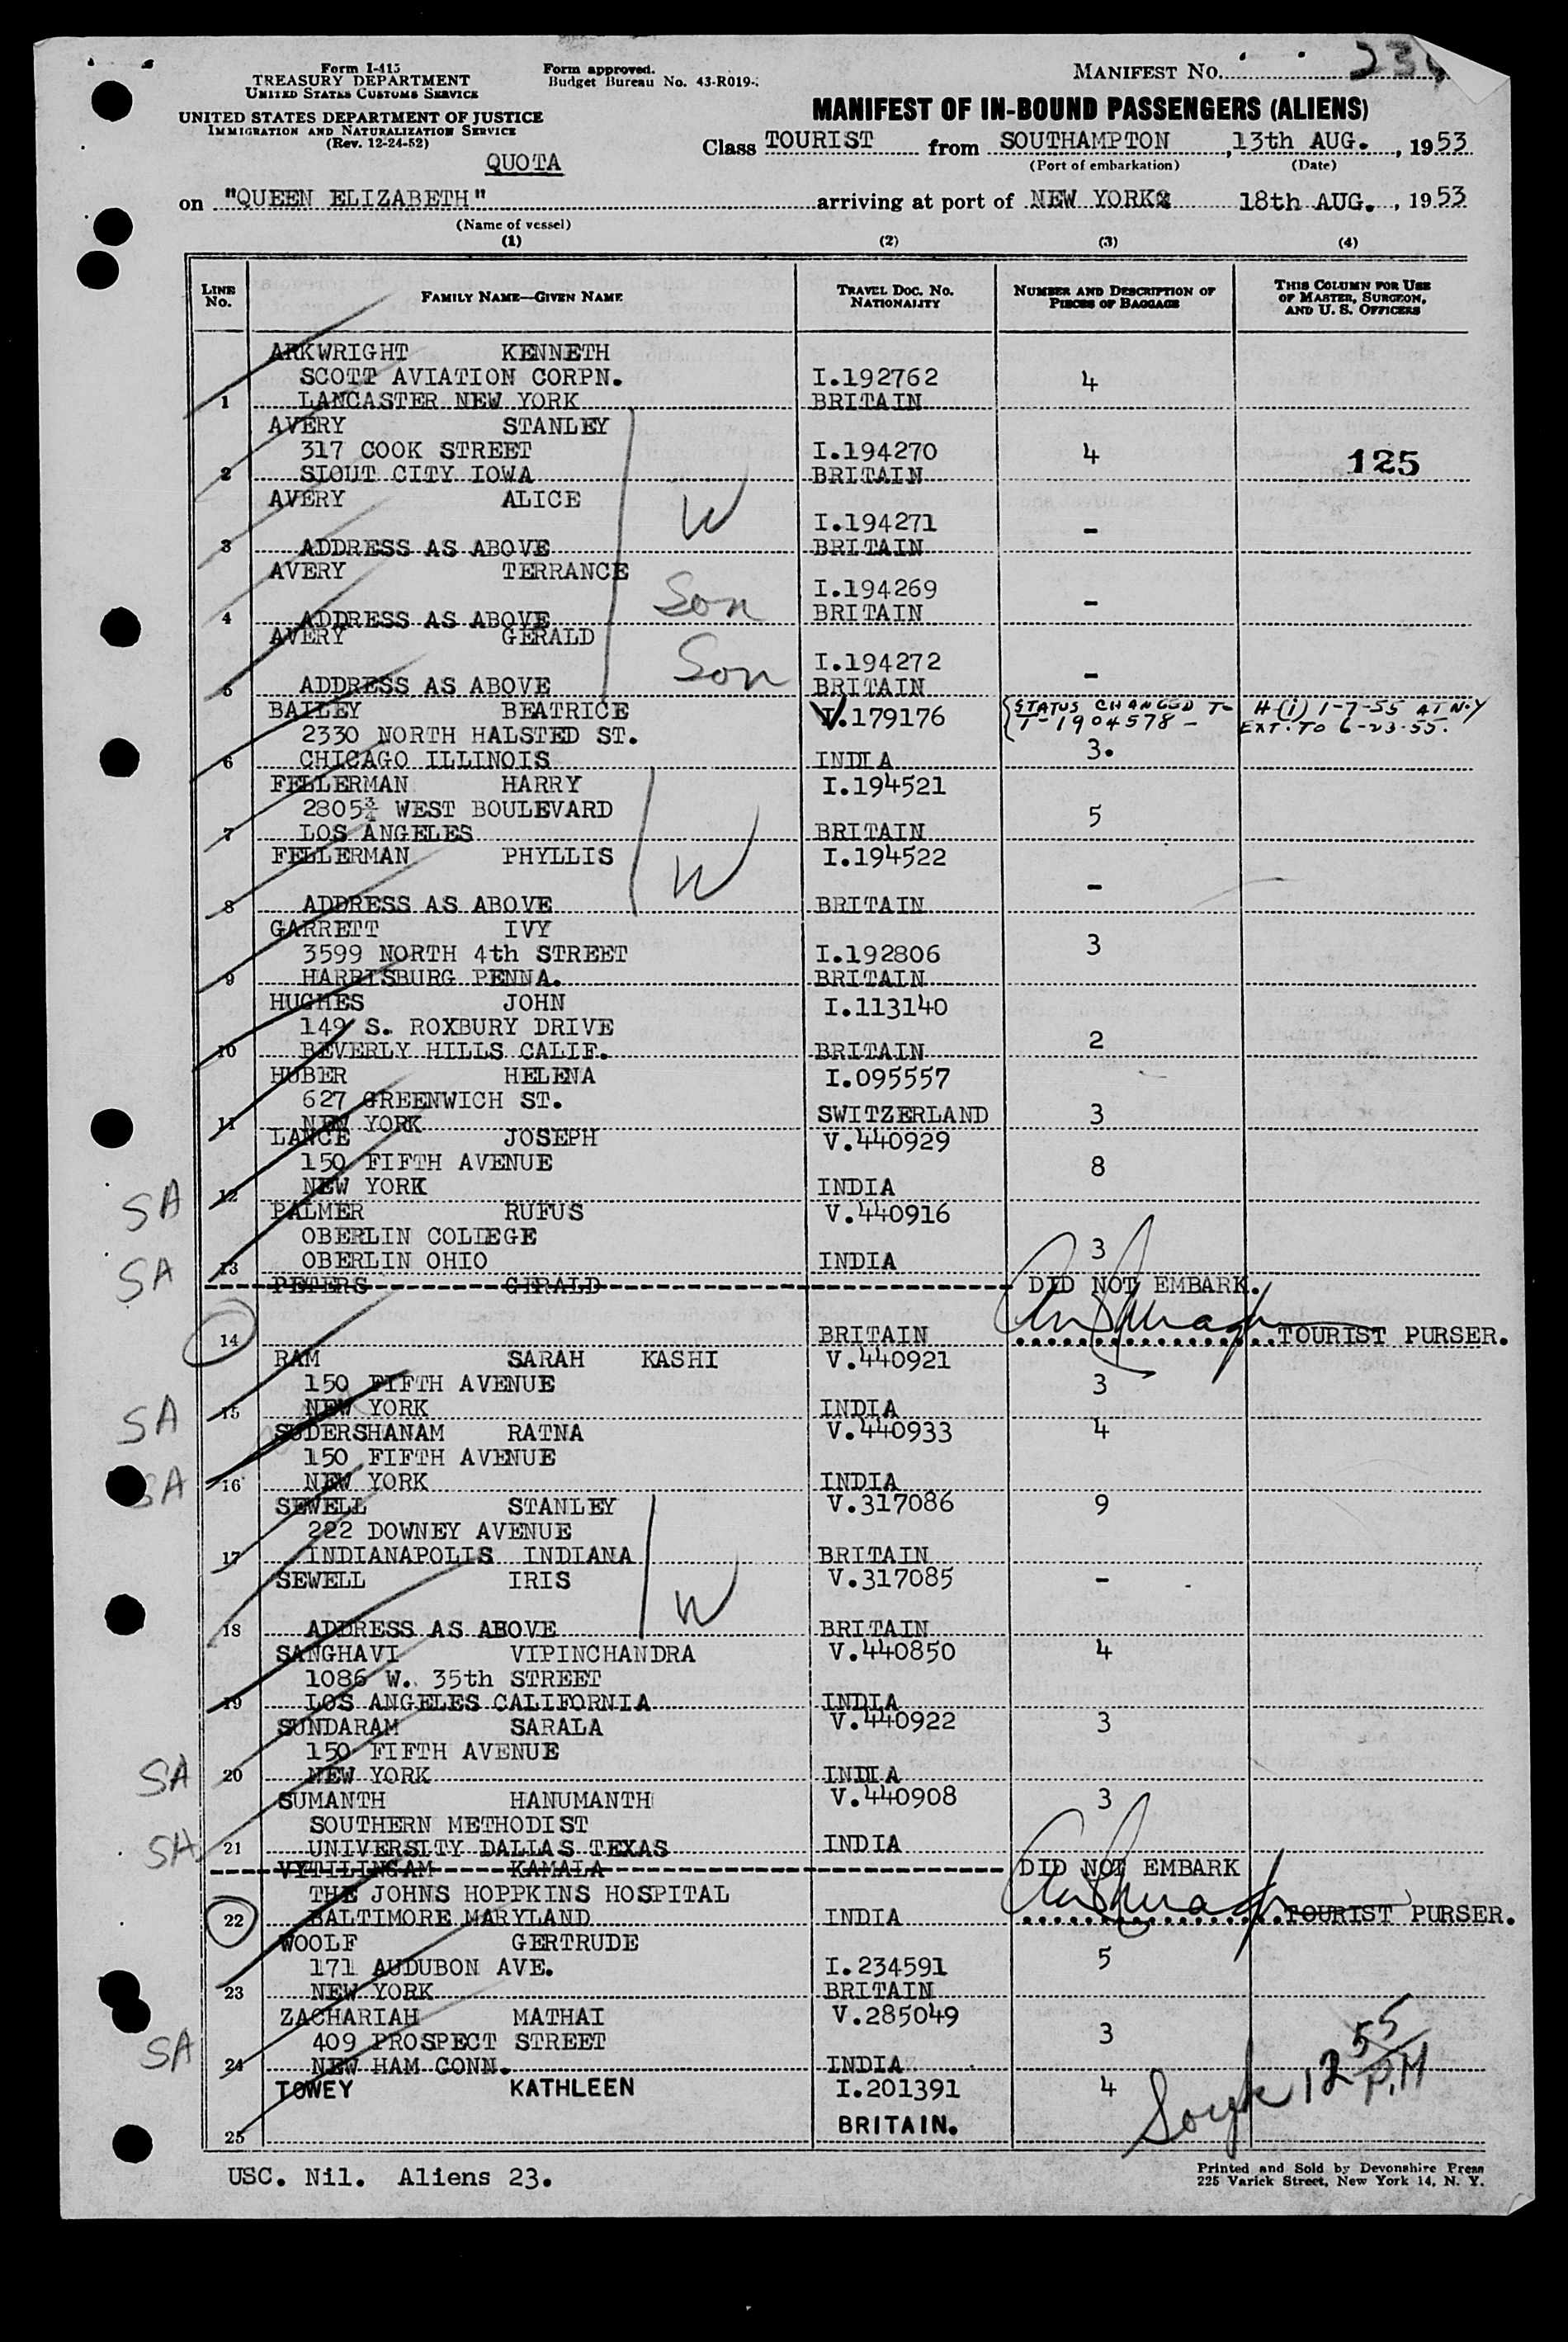 Form I-415
TREASURY DEPARTMENT
UNITED STATES CUSTOMS SERVICE
UNITED STATES DEPARTMENT OF JUSTICE
IMMIGRATION AND NATURALIZATION SERVICE
(Rev. 12-24-52)
Form approved.
Budget Bureau No. 43-R019-
MANIFEST NO.
MANIFEST OF IN-BOUND PASSENGERS (ALIENS)
QUOTA
Class TOURIST from SOUTHAMPTON, 13th AUG., 1953
(Port of embarkation) (Date)
on "QUEEN ELIZABETH" arriving at port of NEW YORK 18th AUG., 1953
(Name of vessel)
(1) (2) (3) (4)
LINE No. FAMILY NAME—GIVEN NAME TRAVEL DOC. NO. NATIONALITY NUMBER AND DESCRIPTION OF PIECES OF BAGGAGE THIS COLUMN FOR USE OF MASTER, SURGEON, AND U. S. OFFICERS
ARKWRIGHT KENNETH
SCOTT AVIATION CORPN. I.192762 4
1 LANCASTER NEW YORK BRITAIN
AVERY STANLEY
317 COOK STREET I.194270 4 125
2 SIOUT CITY IOWA BRITAIN
AVERY ALICE W
I.194271 -
3 ADDRESS AS ABOVE BRITAIN
AVERY TERRANCE
Son I.194269 -
4 ADDRESS AS ABOVE BRITAIN
AVERY GERALD
Son I.194272 -
5 ADDRESS AS ABOVE BRITAIN
BAILEY BEATRICE V.179176 STATUS CHANGED TO H-(i) 1-7-55 AT N.Y
2330 NORTH HALSTED ST. T-1904578- EXT. TO 6-23-55.
6 CHICAGO ILLINOIS INDIA 3.
FELLERMAN HARRY I.194521
2805¾ WEST BOULEVARD 5
7 LOS ANGELES BRITAIN
FELLERMAN PHYLLIS I.194522
W -
8 ADDRESS AS ABOVE BRITAIN
GARRETT IVY 3
3599 NORTH 4th STREET I.192806
9 HARRISBURG PENNA. BRITAIN
HUGHES JOHN I.113140
149 S. ROXBURY DRIVE
10 BEVERLY HILLS CALIF. BRITAIN 2
HUBER HELENA I.095557
627 GREENWICH ST.
11 NEW YORK SWITZERLAND 3
LANCE JOSEPH V.440929
150 FIFTH AVENUE 8
SA 12 NEW YORK INDIA
PALMER RUFUS V.440916
OBERLIN COLIEGE 3
SA 13 OBERLIN OHIO INDIA
PETERS GERALD DID NOT EMBARK.
14 BRITAIN TOURIST PURSER.
RAM SARAH KASHI V.440921
150 FIFTH AVENUE 3
SA 15 NEW YORK INDIA
SUDERSHANAM RATNA V.440933 4
150 FIFTH AVENUE
SA 16 NEW YORK INDIA
SEWELL STANLEY V.317086 9
222 DOWNEY AVENUE
17 INDIANAPOLIS INDIANA BRITAIN
SEWELL IRIS V.317085 -
W
18 ADDRESS AS ABOVE BRITAIN
SANGHAVI VIPINCHANDRA V.440850 4
1086 W. 35th STREET
19 LOS ANGELES CALIFORNIA INDIA
SUNDARAM SARALA V.440922 3
150 FIFTH AVENUE
SA 20 NEW YORK INDIA
SUMANTH HANUMANTH V.440908 3
SOUTHERN METHODIST
SA 21 UNIVERSITY DALLAS TEXAS INDIA
VYTILINGAM KAMALA DID NOT EMBARK
THE JOHNS HOPPKINS HOSPITAL
22 BALTIMORE MARYLAND INDIA TOURIST PURSER.
WOOLF GERTRUDE
171 AUDUBON AVE. I.234591 5
23 NEW YORK BRITAIN
ZACHARIAH MATHAI V.285049
409 PROSPECT STREET 3
SA 24 NEW HAM CONN. INDIA
TOWEY KATHLEEN I.201391 4 12 55 P.M
25 BRITAIN.
USC. Nil. Aliens 23.
Printed and Sold by Devonshire Press
225 Varick Street, New York 14, N. Y.